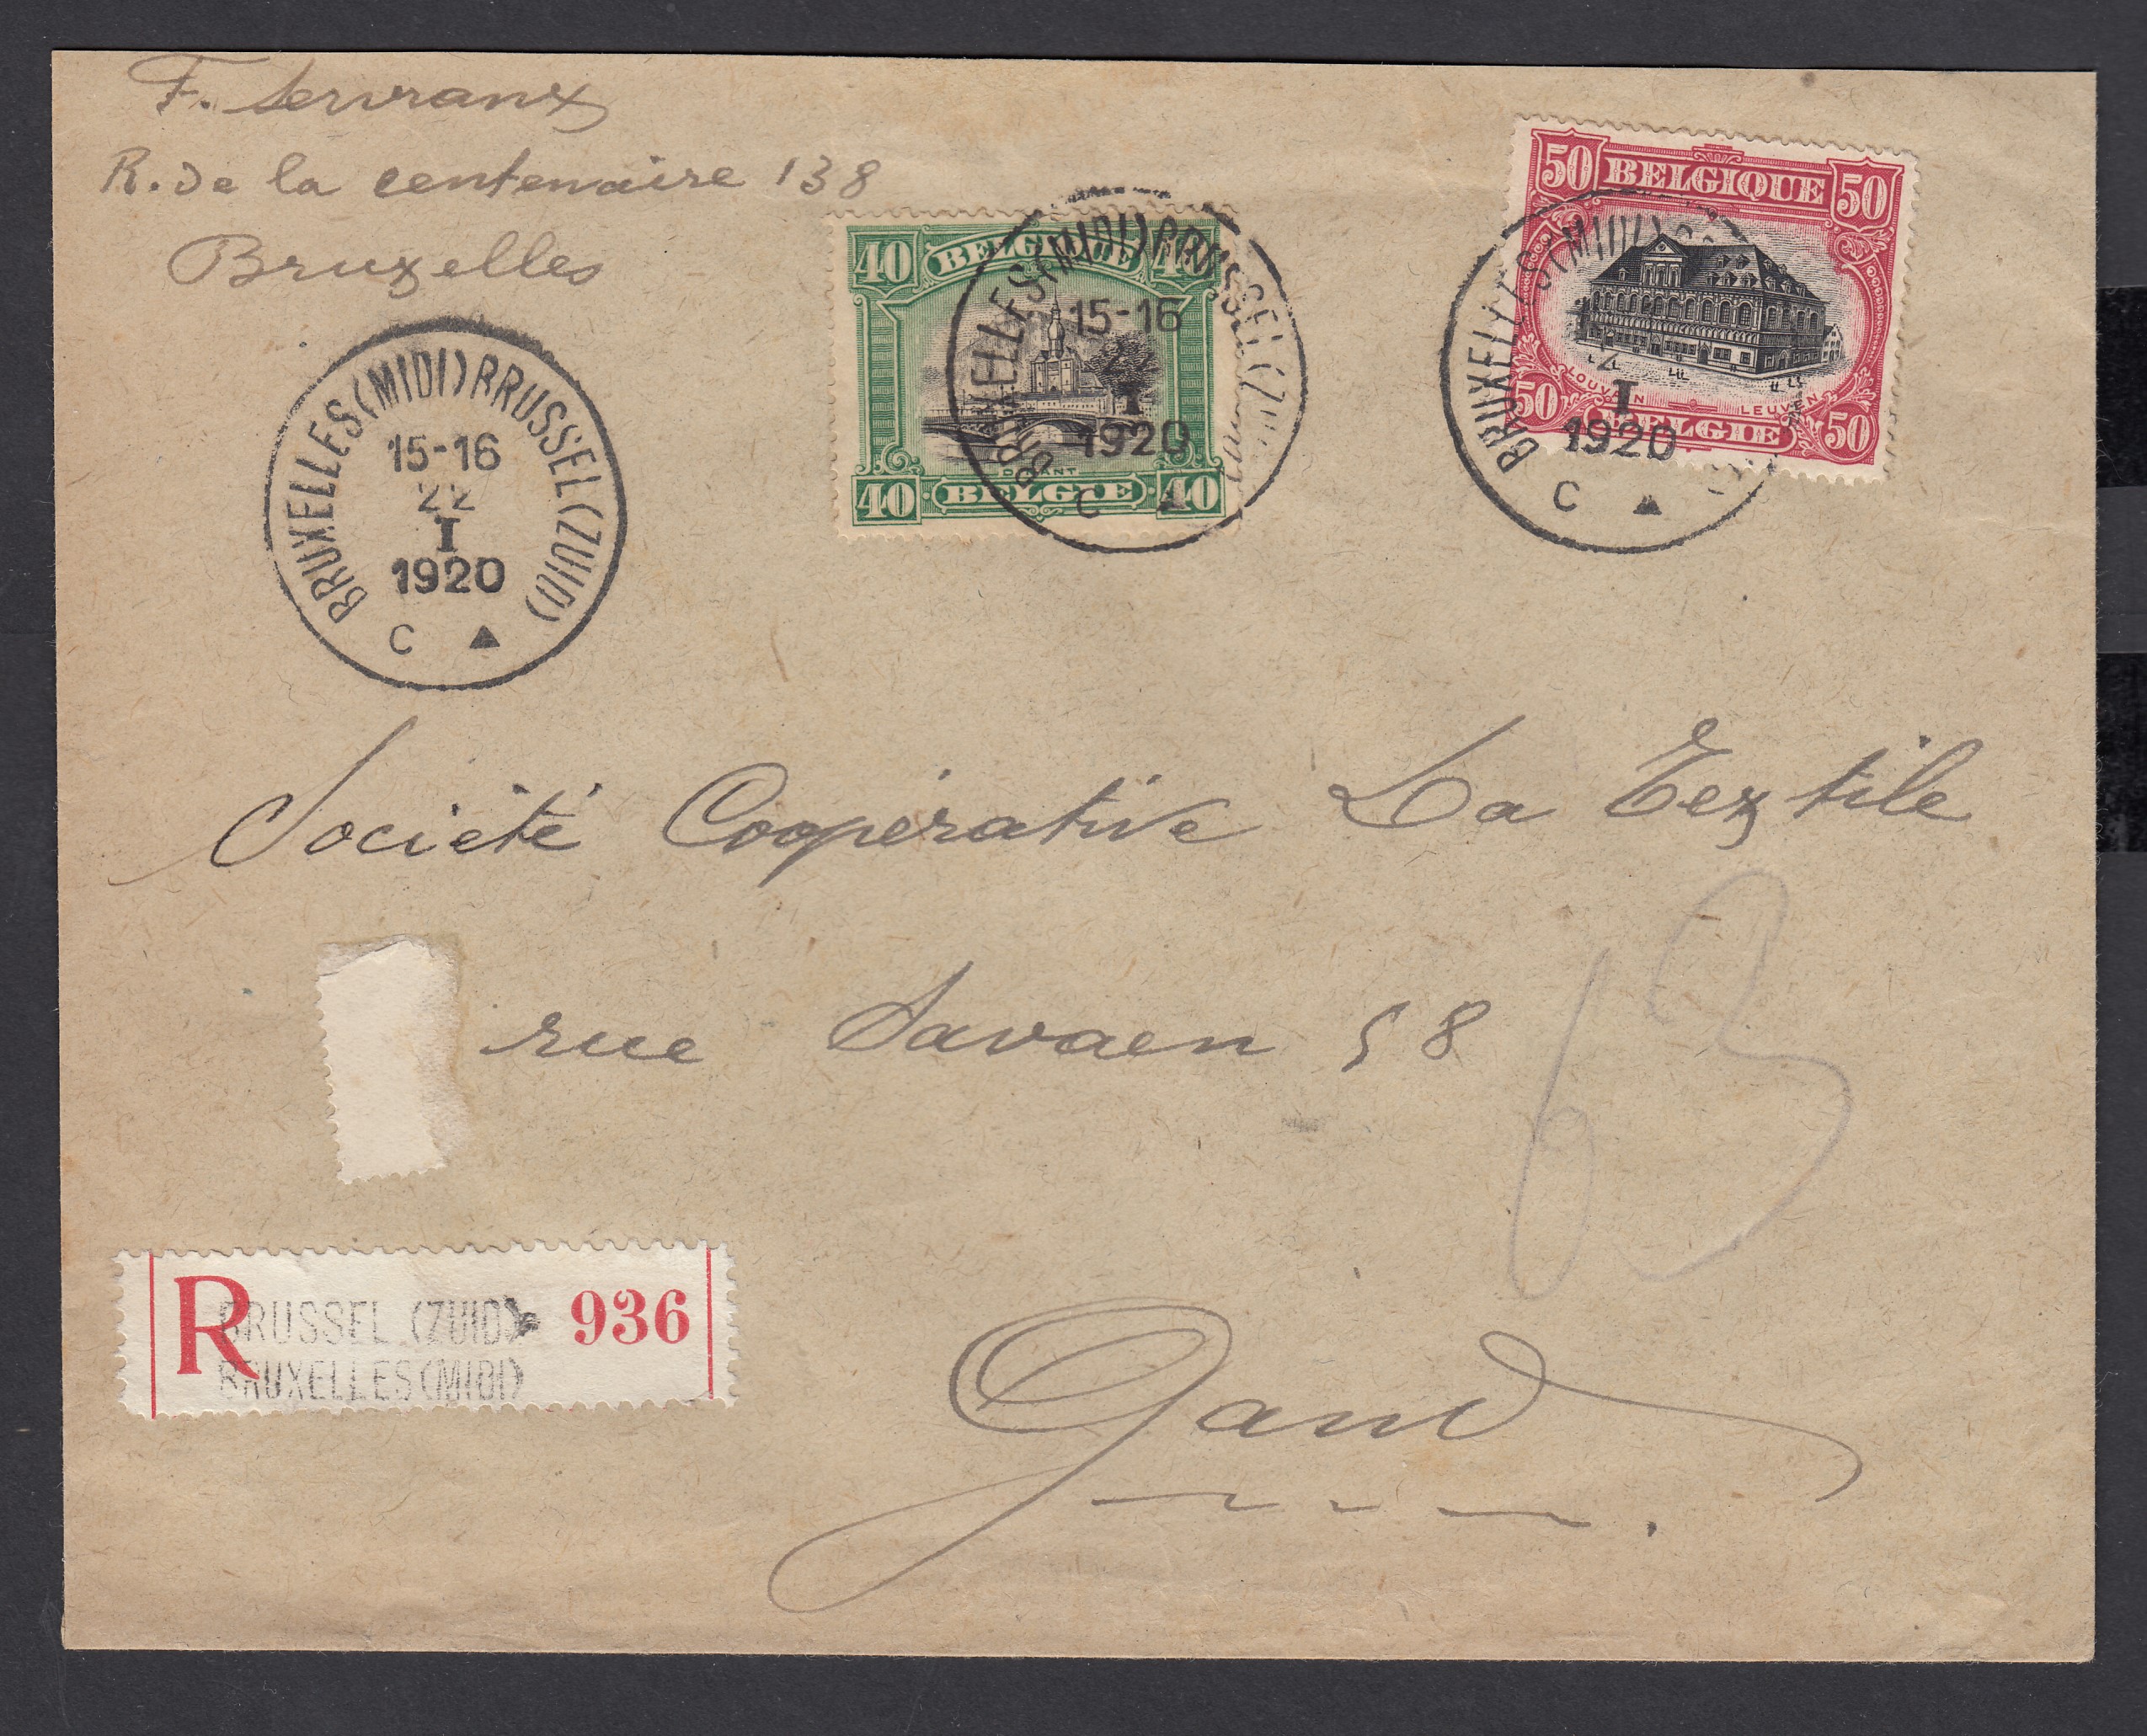 F. Servranx
R. de la centenaire 138
Bruxelles
BRUXELLES (MIDI) BRUSSEL (ZUID)
15-16
22
I
1920
C
40 BELGIQUE 40
DINANT
40 BELGIE 40
BRUXELLES (MIDI) BRUSSEL (ZUID)
15-16
I
1920
C
50 BELGIQUE 50
LOUVAIN LEUVEN
50 BELGIE 50
BRUXELLES (MIDI)
I
1920
C
Société Coopérative La Textile
rue Savaen 58
63
Gand
R BRUSSEL (ZUID) 936
BRUXELLES (MIDI)